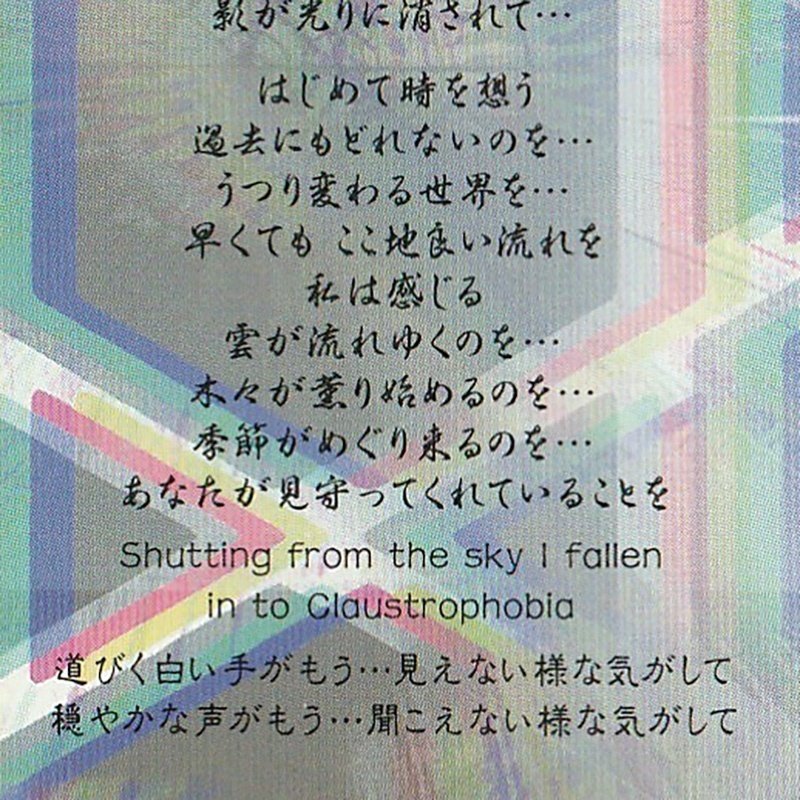 影が光りに消されて…
はじめて時を想う
過去にもどれないのを…
うつり変わる世界を…
早くても ここ地良い流れを
私は感じる
雲が流れゆくのを…
木々が薫り始めるのを…
季節がめぐり来るのを…
あなたが見守ってくれていることを
Shutting from the sky I fallen
in to Claustrophobia
道びく白い手がもう…見えない様な気がして
穏やかな声がもう…聞こえない様な気がして